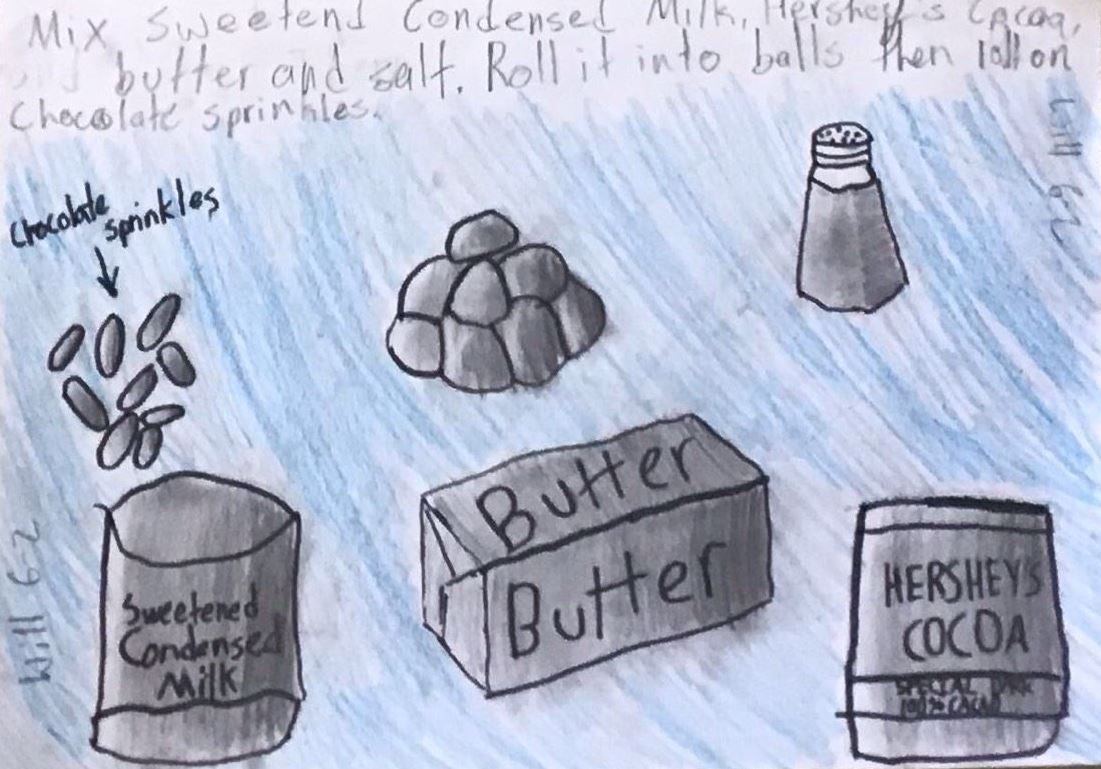 Mix Sweetend Condensed Milk, Hershey's Cacoa,
butter and salt. Roll it into balls then roll on
Chocolate sprinkles.
Will 62
Chocolate
sprinkles
Butter
Butter
HERSHEY'S
COCOA
SPECIAL DARK
100% CACAO
Sweetened
Condensed
Milk
Will 62